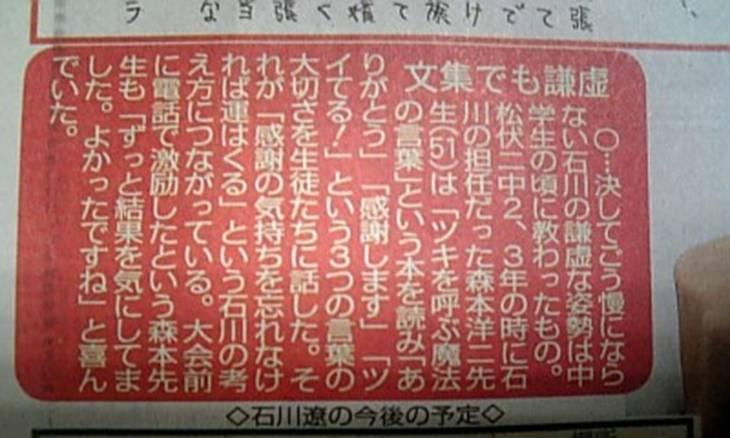 ラ な当張く積て振けでて張
文集でも謙虚
○…決してごう慢になら
ない石川の謙虚な姿勢は中
学生の頃に教わったもの。
松伏二中2、3年の時に石
川の担任だった森本洋二先
生(51)は「ツキを呼ぶ魔法
の言葉」という本を読み「あ
りがとう」「感謝します」「ツ
イてる!」という3つの言葉の
大切さを生徒たちに話した。そ
れが「感謝の気持ちを忘れなけ
れば運はくる」という石川の考
え方につながっている。大会前
に電話で激励したという森本先
生も「ずっと結果を気にしてま
した。よかったですね」と喜ん
でいた。
◇石川遼の今後の予定◇